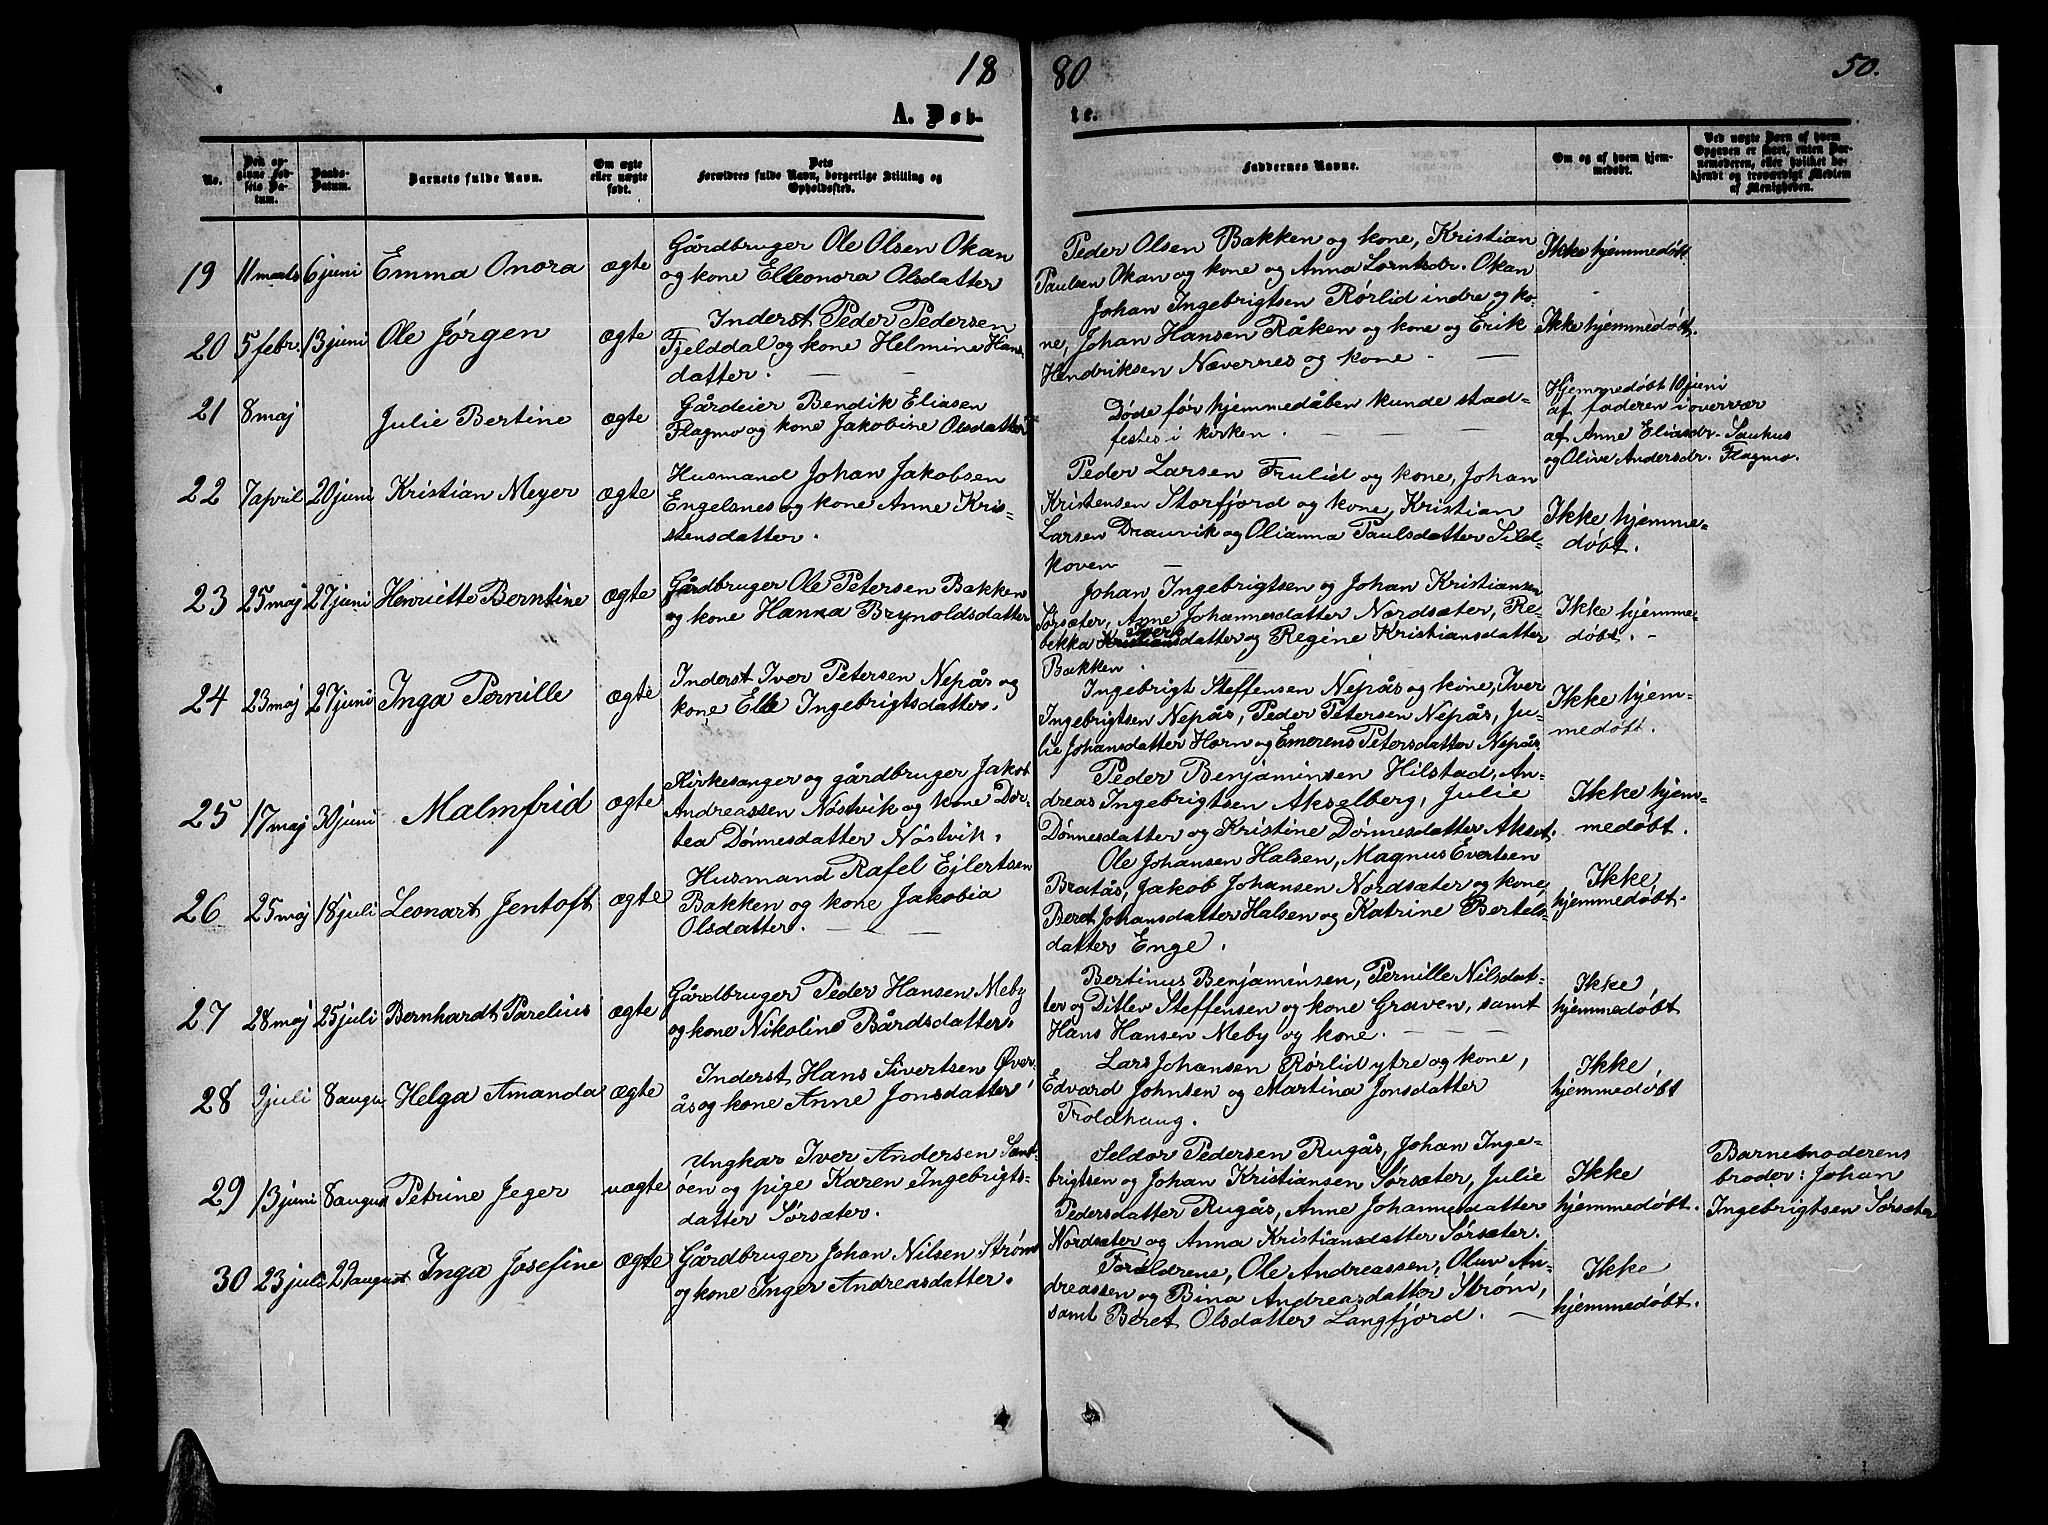 18 80 50.
A. Døb- te.
No.
Den opgivne Fødsels Datum.
Daabs-Datum.
Barnets fulde Navn.
Om ægte eller uægte født.
Dets Forældres fulde Navn, borgerlige Stilling og Opholdssted.
Faddernes Navne.
Om og af hvem hjemmedøbt.
Ved uægte Børn af hvem Opgaven er skeet, enten Barnemoderen, eller hvilket bekjendt og troværdigt Medlem af Menigheden.
19 11 marts 6 juni Emma Onora ægte
Gårdbruger Ole Olsen Okan
og kone Elleonora Olsdatter
Peder Olsen Bakken og kone, Kristian
Paulsen Okan og kone og Anna Lorntsdr. Okan
Ikke hjemmedøbt.
20 5 febr. 13 juni Ole Jørgen ægte
Inderst Peder Pedersen
Fjelddal og kone Helmine Hans
datter. — —
Johan Ingebrigtsen Rørlid indre og ko-
ne, Johan Hansen Råken og kone og Erik
Hendriksen Nævernes og kone. —
Ikke hjemmedøbt.
21 8 maj Julie Bertine ægte
Gårdeier Bendik Eliasen
Flagmo og kone Jakobine Olsdatter
Døde før hjemmedåben kunde stad-
festes i kirken. — — —
Hjemmedøbt 10 juni
af faderen i overvær
af Anne Eliasdr. Sauhus
og Olive Andersdr. Flagmo.
22 7 april 20 juni Kristian Meyer ægte
Husmand Johan Jakobsen
Engelsnes og kone Anne Kris-
stensdatter.
Peder Larsen Frulid og kone, Johan
Kristensen Storfjord og kone, Kristian
Larsen Drauvik og Olianna Paulsdatter Sild-
koven —
Ikke hjemme-
døbt.
23 25 maj 27 juni Henriette Berntine ægte
Gårdbruger Ole Petersen Bakken
og kone Hanna Brynoldsdatter
Johan Ingebrigtsen og Johan Kristiansen
Sørsæter, Anne Johannesdatter Nordsæter, Re-
bekka Kristiansdatter Ivers og Regine Kristiansdatter
Bakken.
Ikke hjemme-
døbt. —
24 23 maj 27 juni Inga Pernille ægte
Inderst Iver Petersen Nepås og
kone Elle Ingebrigtsdatter.
Ingebrigt Steffensen Nepås og kone, Iver
Ingebrigtsen Nepås, Peder Petersen Nepås, Ju-
lie Johansdatter Horn og Emerens Petersdatter Nepås
Ikke hjem-
medøbt.
25 17 maj 30 juni Malmfrid ægte
Kirkesanger og gårdbruger Jakob
Andreassen Nøstvik og kone Dor-
tea Dønnesdatter Nøstvik.
Peder Benjaminsen Hilstad, An-
dreas Ingebrigtsen Akselberg, Julie
Dønnesdatter og Kristine Dønnesdatter Akset.
Ikke hjem-
medøbt.
26 25 maj 18 juli Leonart Jentoft ægte
Husmand Rafel Ejlertsen
Bakken og kone Jakobia
Olsdatter. — — —
Ole Johansen Halsen, Magnus Evertsen
Bratås, Jakob Johansen Nordsæter og kone,
Beret Johansdatter Halsen og Katrine Bertels-
datter Enge.
Ikke
hjemmedøbt.
27 28 maj 25 juli Bernhardt Parelius ægte
Gårdbruger Peder Hansen Meby
og kone Nikoline Bårdsdatter.
Bertinus Benjaminsen, Pernille Nilsdat-
ter og Ditlev Steffensen og kone Graven, samt
Hans Hansen Meby og kone. — — —
Ikke
hjemmedøbt
28 juli 8 august Helga Amanda ægte
Inderst Hans Sivertsen Øver
ås og kone Anne Jonsdatter
Lars Johansen Rørlid ytre og kone,
Edvard Johnsen og Martina Jonsdatter
Troldhaug.
Ikke
hjemmedøbt
29 13 juni 8 august Petrine Jeger uægte
Ungkar Iver Andersen Sømt-
øen og pige Karen Ingebrigts-
datter Sørsæter.
Seldor Pedersen Rugås, Johan Inge-
brigtsen og Johan Kristiansen Sørsæter, Julie
Pedersdatter Rugås, Anne Johannesdatter
Nordsæter og Anna Kristiansdatter Sørsæter.
Ikke
hjemmedøbt.
Barnemoderens
broder: Johan
Ingebrigtsen Sørsæter
30 23 juli 29 august Inga Josefine ægte
Gårdbruger Johan Nilsen Strøm
og kone Inger Andreasdatter.
Forældrene, Ole Andreassen, Oluv An-
dreassen og Bina Andreasdatter Strøm,
samt Beret Olsdatter Langfjord. —
Ikke
hjemmedøbt.